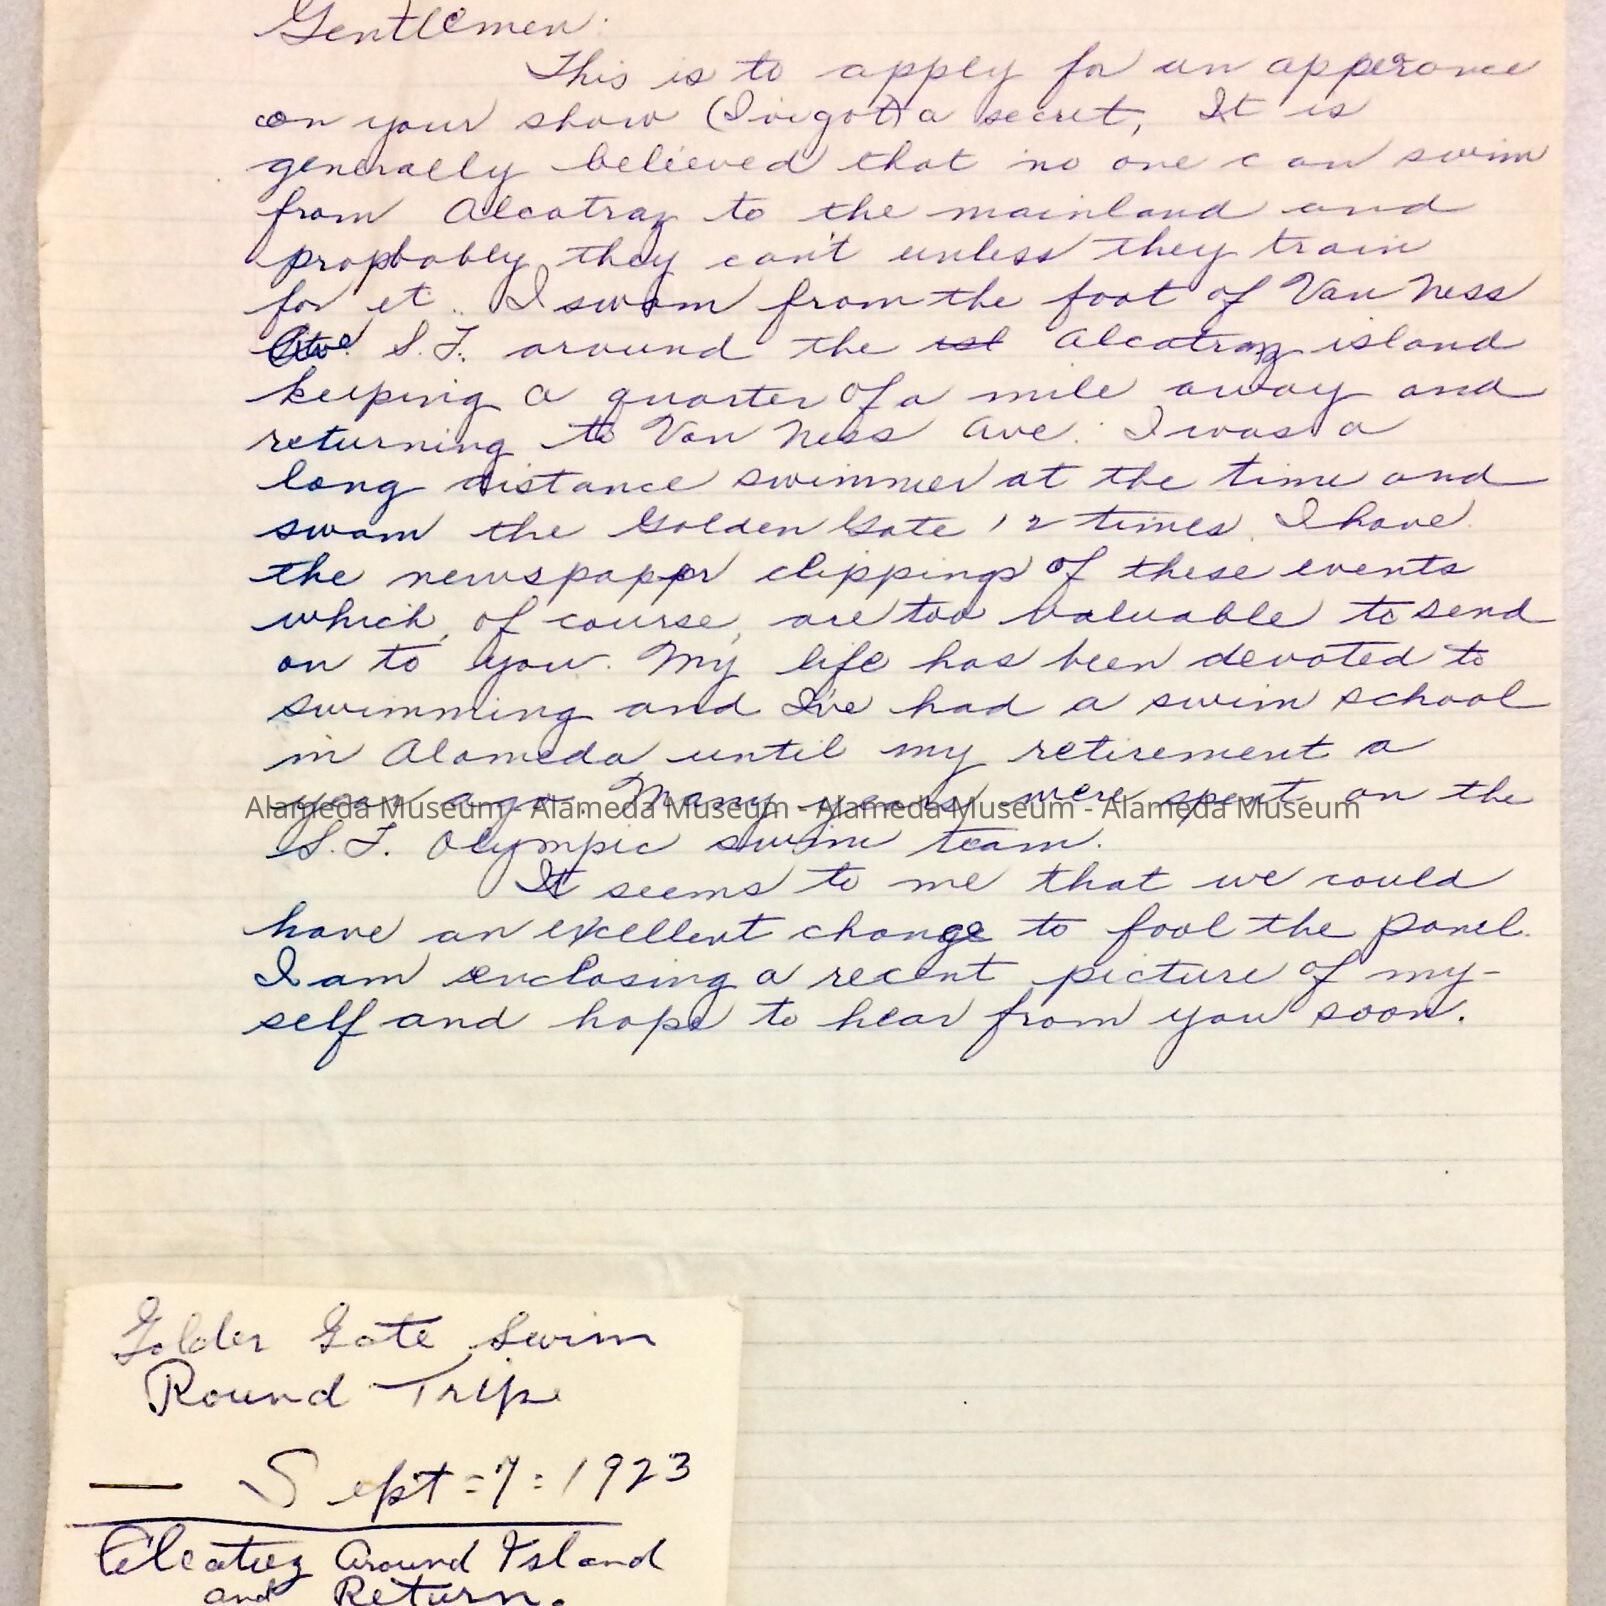 Gentlemen:
This is to apply for an apperance
on your show (I've got) a secret, It is
generally believed that no one can swim
from Alcatraz to the mainland and
propbobly they can't unless they train
for it.. I swom from the foot of Van Ness
Ave S.F. around the ist Alcatraz island
keeping a quarter of a mile away and
returning to Van Ness Ave. I was a
long distance swimmer at the time and
swam the Golden Gate 12 times. I have
the newspapper clippings of these events
which, of course, are too valuable to send
on to you. My life has been devoted to
swimming and I've had a swim school
in Alameda until my retirement a
year ago. Many years were spent on the
Alameda Museum - Alameda Museum - Alameda Museum - Alameda Museum
S.F. Olympic swim team.
It seems to me that we could
have an excellent change to fool the panel.
I am enclosing a recent picture of my-
self and hope to hear from you soon.
Golden Gate Swim
Round Trip
— Sept=7=1923
Alcatraz Around Island
and Return.